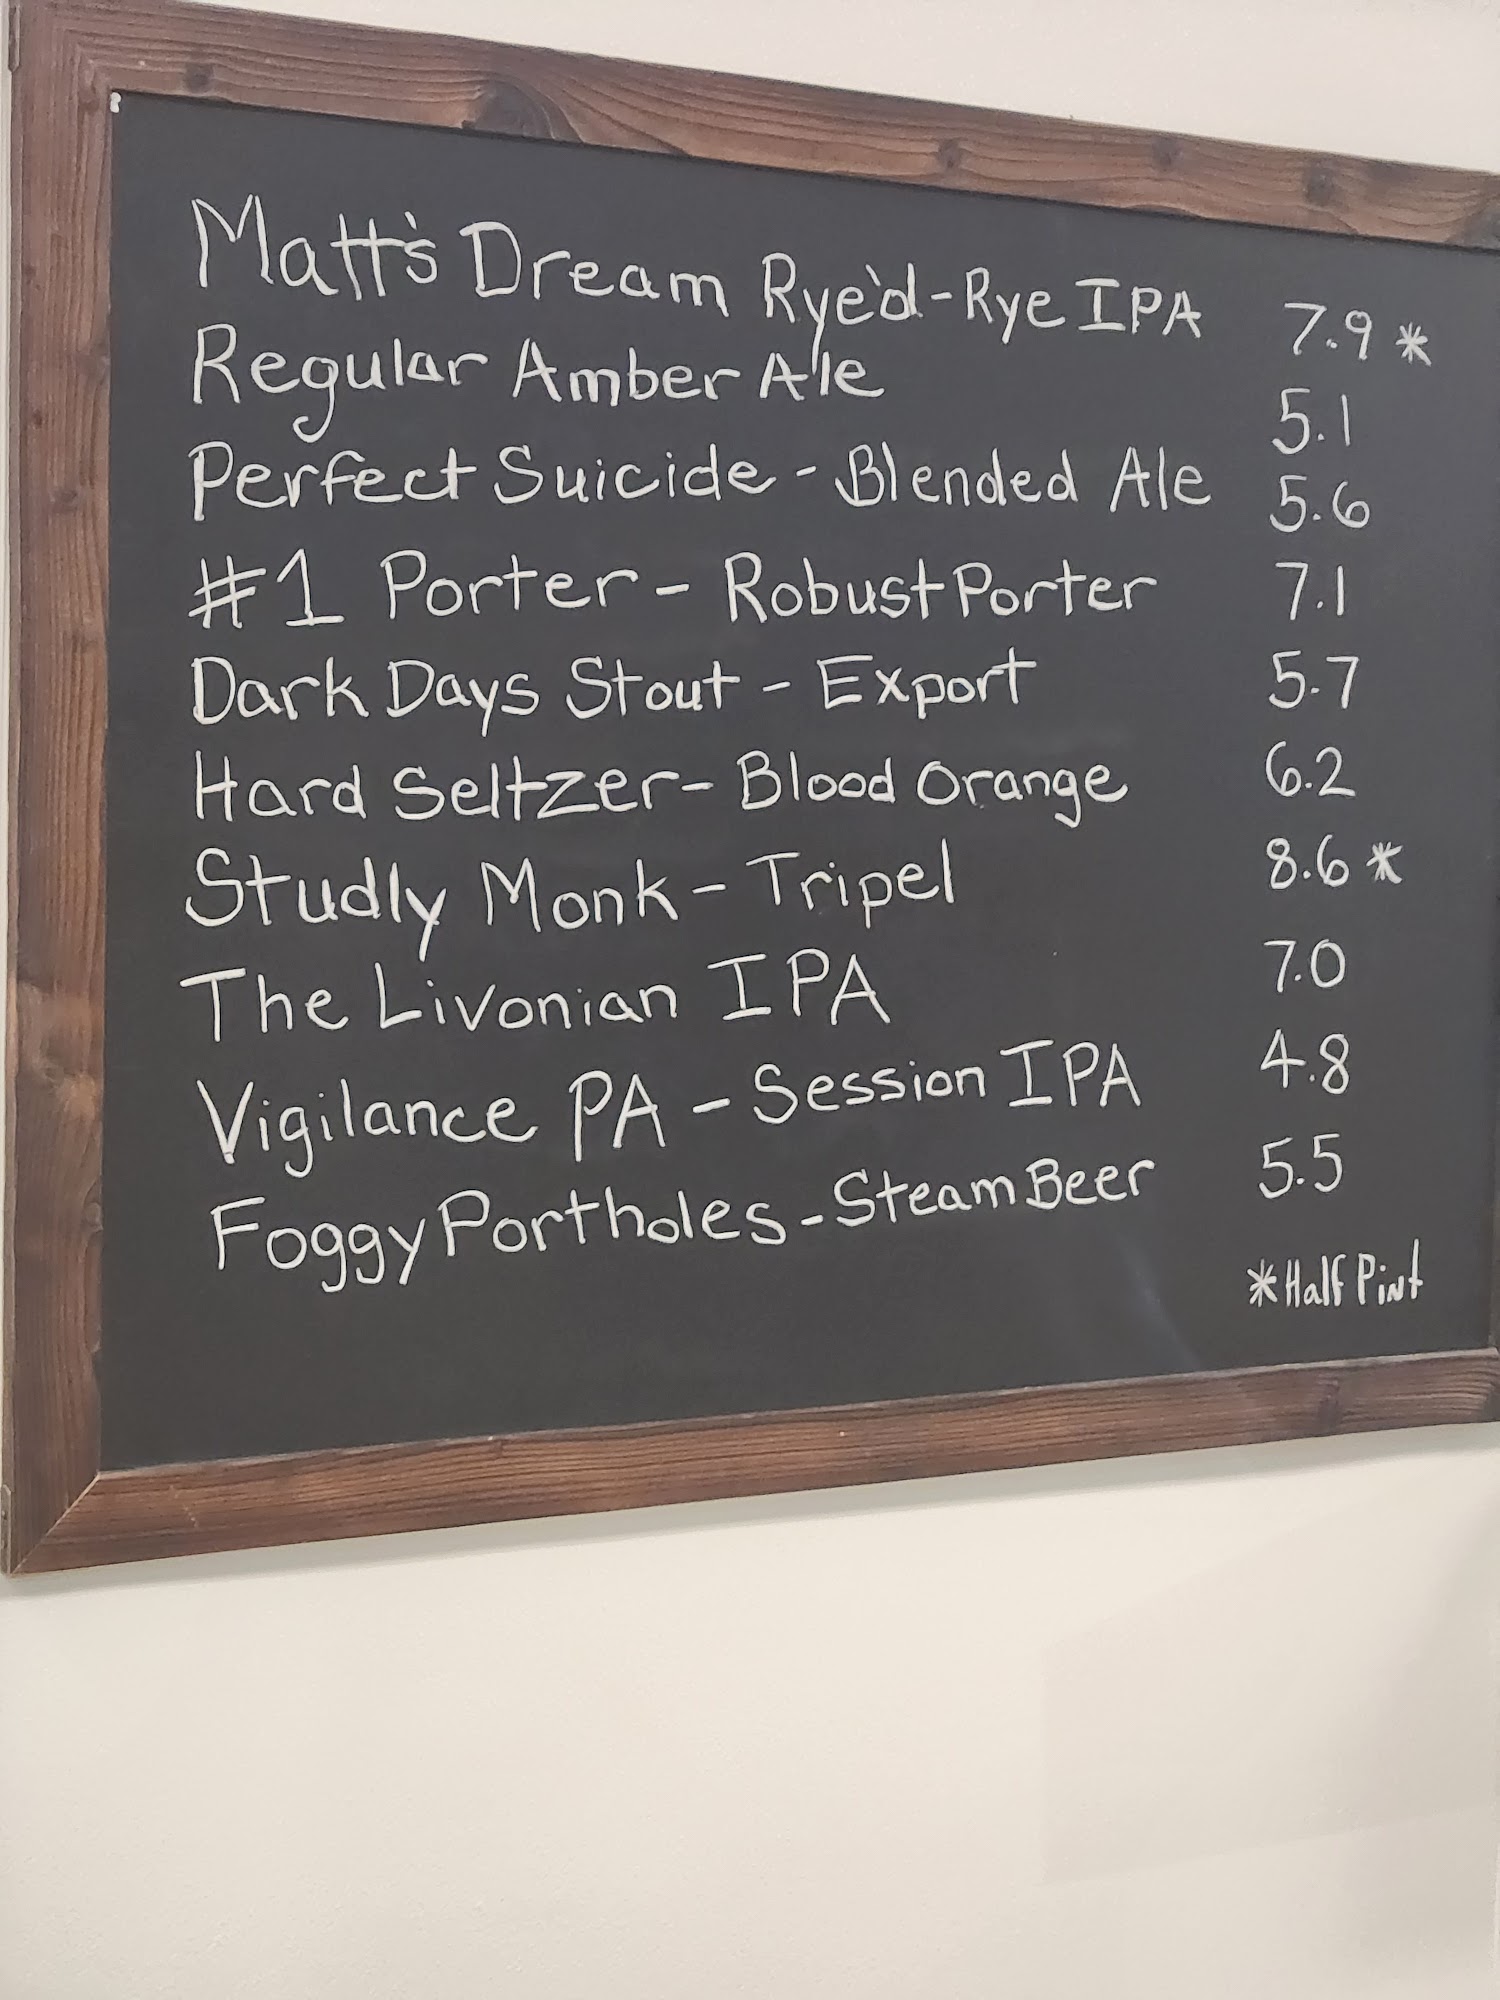 Matt's Dream Rye'd - Rye IPA 7.9 *
Regular Amber Ale 5.1
Perfect Suicide - Blended Ale 5.6
#1 Porter - Robust Porter 7.1
Dark Days Stout - Export 5.7
Hard Seltzer - Blood Orange 6.2
Studly Monk - Tripel 8.6 *
The Livonian IPA 7.0
Vigilance PA - Session IPA 4.8
Foggy Portholes - Steam Beer 5.5
* Half Pint